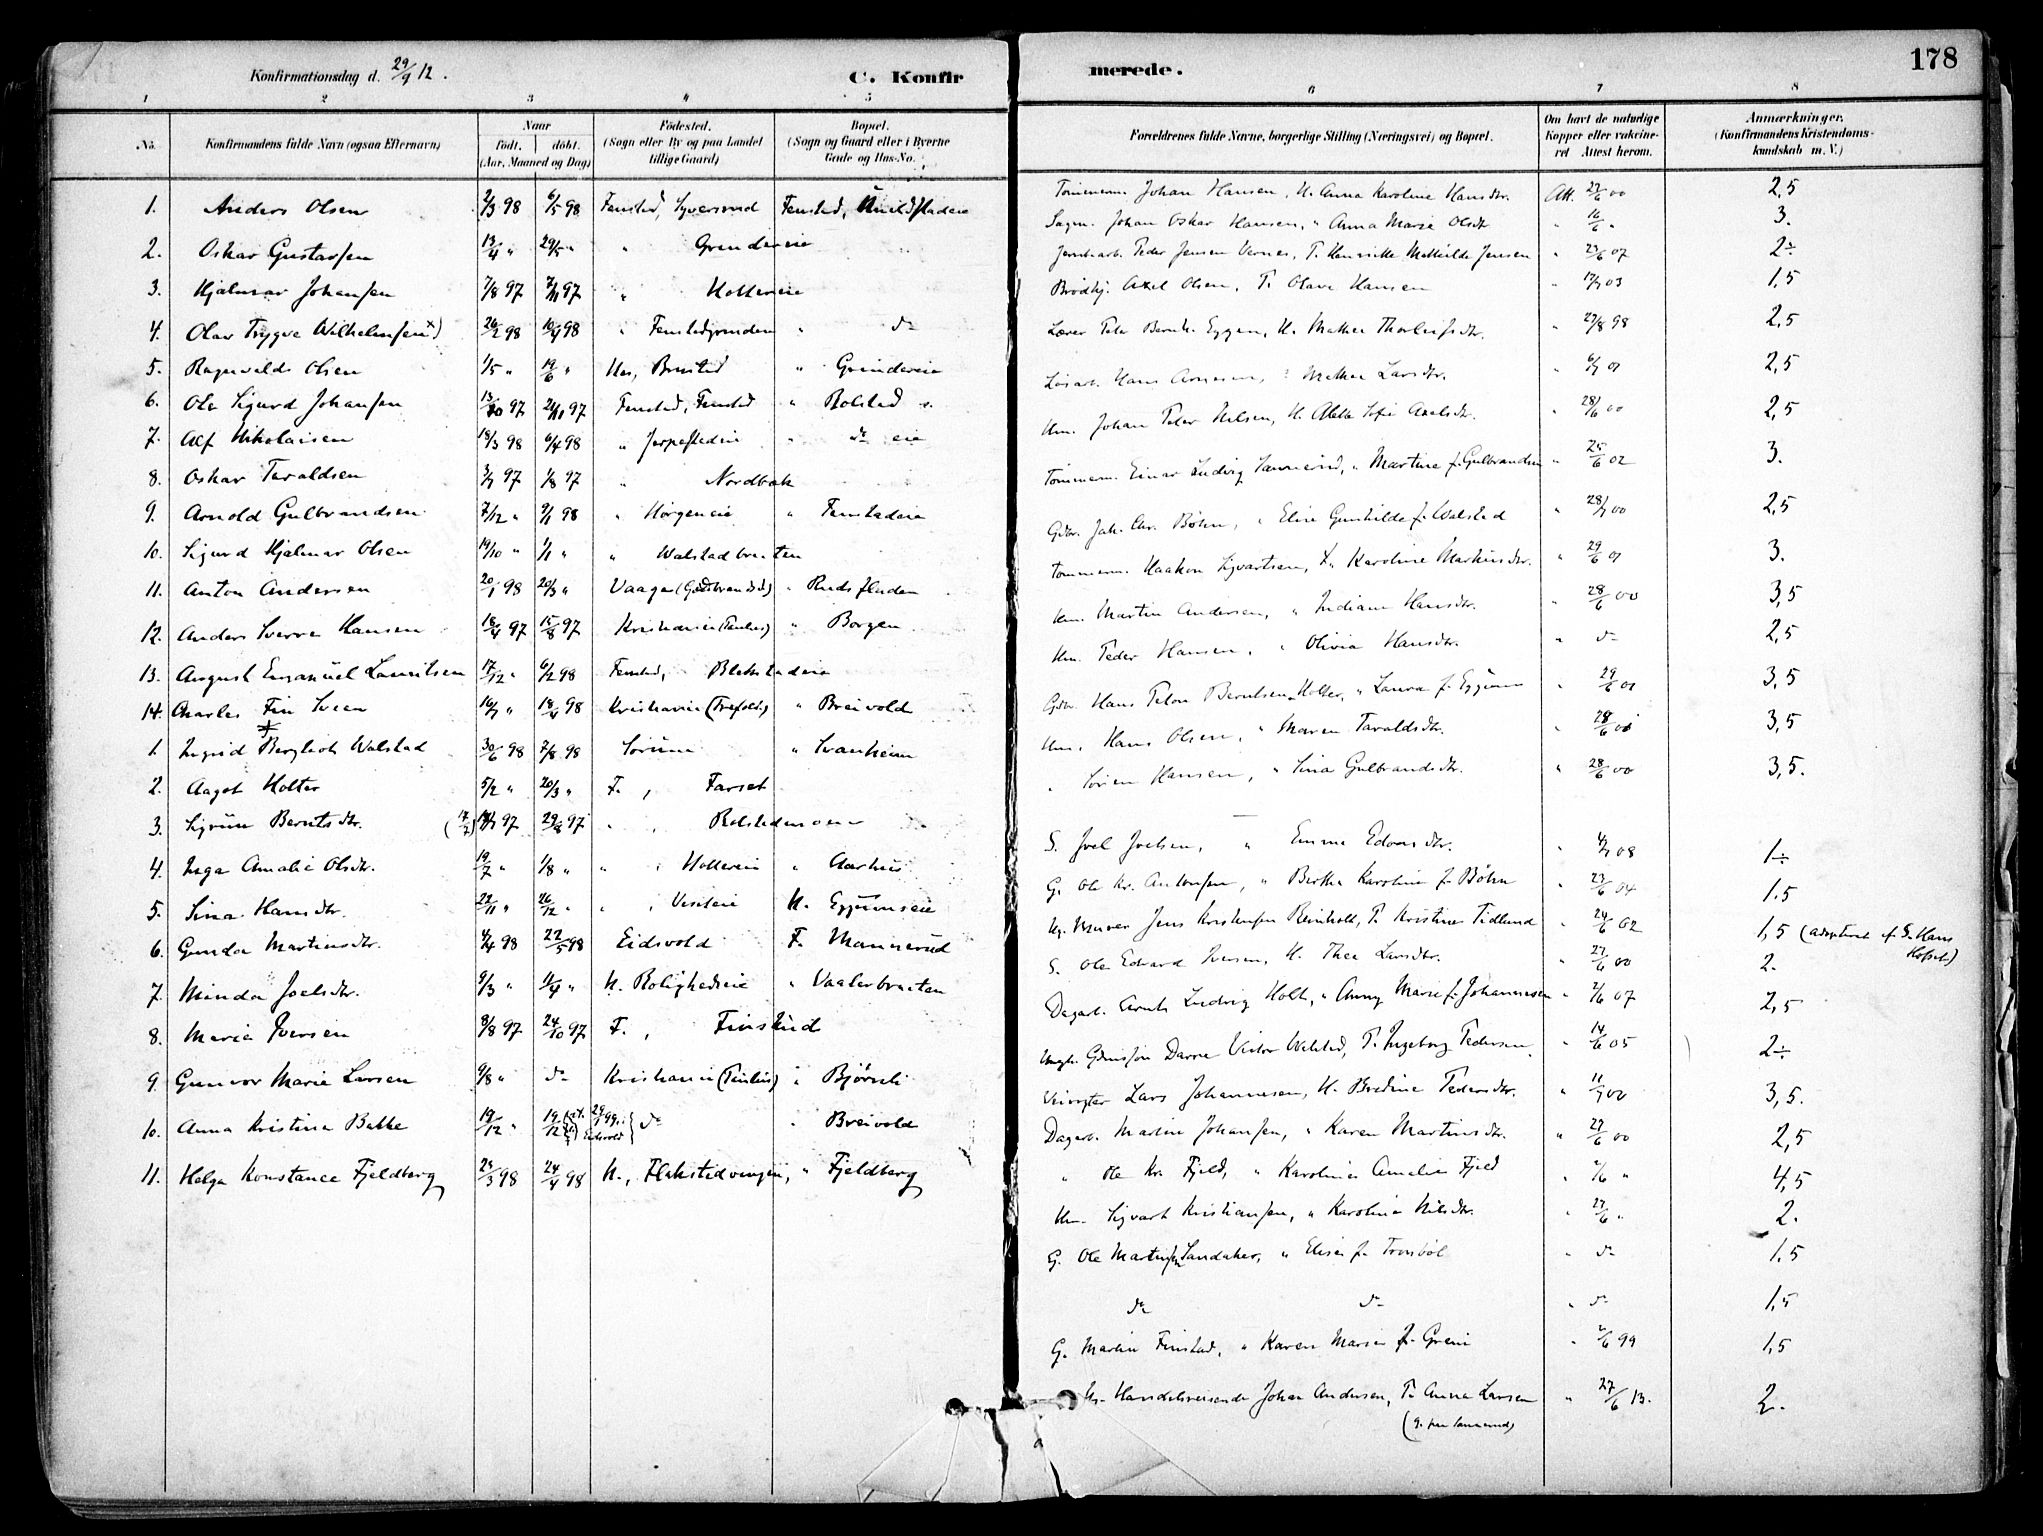 178
Konfirmationsdag d. 29/9 12.
C. Konfir
merede.
1 2 3 4 5 6 7 8
No.
Konfirmandens fulde Navn (ogsaa Efternavn)
Naar
født. døbt.
(Aar, Maaned og Dag)
Fødested.
(Sogn eller By og paa Landet
tillige Gaard)
Bopæl.
(Sogn og Gaard eller i Byerne
Gade og Hus-No.
Forældrenes fulde Navne, borgerlige Stilling (Næringsvei) og Bopæl.
Om havt de naturlige
Kopper eller vakcine-
ret Attest herom.
Anmærkninger.
(Konfirmandens Kristendoms-
kundskab m. V.)
1. Anders Olsen 2/3 98 6/5 98 Fenstad,
2. Oskar Gustavsen 13/4 " 29/5 " " Grendereie
3. Hjalmar Johansen 7/8 97 7/11 97 " Holtereie
4. Olav Trygve Wilhelmsen x) 26/2 98 10/4 98 " Fenstadgrinden " do
5. Ragnvald Olsen 1/5 " 19/6 " " Grindereie
6. Ole Sigurd Johansen 13/10 97 21/11 97 Fenstad, Fenstad " Rolstad
7. Alf Nikolaisen 18/3 98 6/4 98 " " do eie
8. Oskar Taraldsen 3/7 97 1/8 97 " Nordbak
9. Arnold Gulbrandsen 7/12 " 9/1 98 " " Fenstadeie
10. Sigurd Hjalmar Olsen 19/10 " 1/11 " " Walstadbraaten
11. Anton Andersen 20/1 98 20/3 " Vaage (Gudbrandsd.) "
12. Anders Sverre Hansen 18/4 97 15/8 97 Kristiania " Borgen
13. August Emanuel Lauritsen 17/12 " 6/2 98 Fenstad, Blekstadeie
14. Charles Fin Sveen 16/7 " 18/4 98 Kristiania (Trefold.) " Breivold
1. Ingrid Bergliot Walstad 30/6 98 7/8 98 Sørum " Svanheim
2. Aagot Holter 5/2 " 20/3 " F. , Farset
3. Sigrun Berntsdtr. 97 29/8 97 " , Rolstadmoen
4. Inga Amalie Olsdtr. 19/7 " 1/8 " " , Holtereie " Aarhus
5. Sina Hansdtr. 22/11 " 26/12 " " , N. Eggumseie
6. Gunda Martinsdtr. 4/4 98 22/5 98 Eidsvold F. Mannerud
7. Minda Joelsdtr. 9/3 " 11/4 " N. Rolighedseie " Vaalerbraaten
8. Marie Iversen 8/8 97 24/10 97 F. , Finstad
9. Gunvor Marie Larsen 9/8 " do Kristiania (Paulus) " Bjørnli
10. Anna Kristina Bakke 19/12 " 19/12 Eidsvold do " Breivold
11. Helga Konstance Fjeldberg 23/3 98 24/4 98 N., " Fjeldberg
Tømmerm. Johan Hansen, H. Anna Karoline Hansdtr. Att. 27/6 00 2,5
Sagm. Johan Oskar Hansen, " Anna Marie Olsdtr " 16/6 " 3.
Jernbarb. Peder Jensen Vernes, P. Henrikke Mathilde Jensen " 23/6 07 2÷
Brødkj. Axel Olsen, P. Olava Hansen " 17/7 03 1,5
Lærer Peter Bernh. Eggen, H. Mathea Thorleifsdtr. " 27/8 98 2,5
Løsarb. Hans Arnesen, " Mathea Larsdtr. " 6/7 01 2,5
Hm. Johan Peter Nilsen, H. Aleta Sofie Axelsdtr. " 28/6 00 2,5
Tømmerm. Einar Ludvig Sannerud, " Martine f. Gulbrandsen " 25/6 02 3.
Gdbr. Joh. Chr. Bøhn, " Elise Gunhilde f. Walstad " 28/7 00 2,5
Tømmerm. Haakon Sigvartsen, " Karoline Markusdtr. " 29/6 01 3.
Hm. Martin Andersen, " Indiane Hansdtr. " 28/6 00 3,5
Hm. Peder Hansen, " Olivia Hansdtr. " do 2,5
Gdbr. Hans Peter Berntsen Holter, " Laura f. Eggum " 29/6 01 3,5
Hm. Hans Olsen, " Maren Taraldsdtr. " 28/6 00 3,5
" Søren Hansen, " Sina Gulbrandsdtr. " 28/6 00 3,5.
S. Joel Joelsen, " Emma Edvardsdtr. " 4/7 08 1÷
G. Ole Kr. Antonsen, " Berthe Karoline f. Bøhn " 23/6 04 1.5
Murer Jens Kristensen Reinholt, P. Kristine Tidlund " 24/6 02 1,5 (adopteret af S. Hans
Hofset)
S. Ole Edvard Iversen, H. Thea Larsdtr. " 27/6 00 2.
Dagarb. Ernst Ludvig Holt, " Anny Marie f. Johannesen " 2/6 07 2,5
Ungk. Victor Walstad, P. Ingeborg Pedersen " 14/6 05 2÷
Veivogter Lars Johannesen, H. Bredine Pedersdtr. " 11/7 00 3,5.
Dagarb. Martin Johansen, " Karen Martinsdtr. " 27/6 00 2,5
" Ole Kr. Fjeld, " Karoline Amalie Fjeld " 2/6 " 4,5
Hm. Sigvart Kristiansen, " Karoline Nilsdtr. " 27/6 " 2.
G. Ole Martinsen Sandaker, " Elise f. Tronbøl " do 1.5
do do " do 1,5
G. Martin Finstad, " Karen Marie f. Greni " 2/6 99 1,5
Handelsreisende Johan Andersen, P. Anna Larsen " 27/6 13. 2.